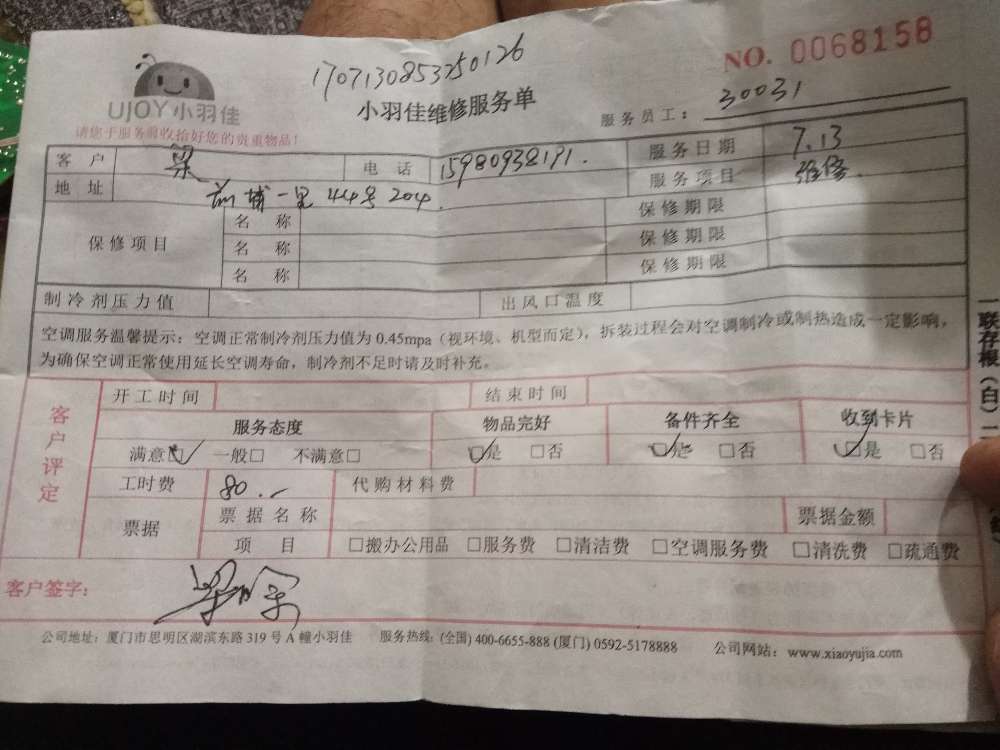 1707130853250126
NO. 0068158
UJOY小羽佳
小羽佳维修服务单
服务员工: 30031
请您于服务前收拾好您的贵重物品!
客户 梁 电话 15980938191. 服务日期 7.13
地址 前埔一里44号204. 服务项目 维修.
保修项目 名称 保修期限
名称 保修期限
名称 保修期限
制冷剂压力值 出风口温度
空调服务温馨提示: 空调正常制冷剂压力值为 0.45mpa (视环境、机型而定), 拆装过程会对空调制冷或制热造成一定影响,
为确保空调正常使用延长空调寿命, 制冷剂不足时请及时补充。
客户评定
开工时间 结束时间
服务态度 物品完好 备件齐全 收到卡片
满意☑ 一般□ 不满意□ ☑是 □否 ☑是 □否 ☑是 □否
工时费 80.- 代购材料费
票据 票据名称 票据金额
项目 □搬办公用品 □服务费 □清洁费 □空调服务费 □清洗费 □疏通费
客户签字:
公司地址: 厦门市思明区湖滨东路 319 号 A 幢小羽佳 服务热线: (全国) 400-6655-888 (厦门) 0592-5178888 公司网站: www.xiaoyujia.com
一联存根(白)